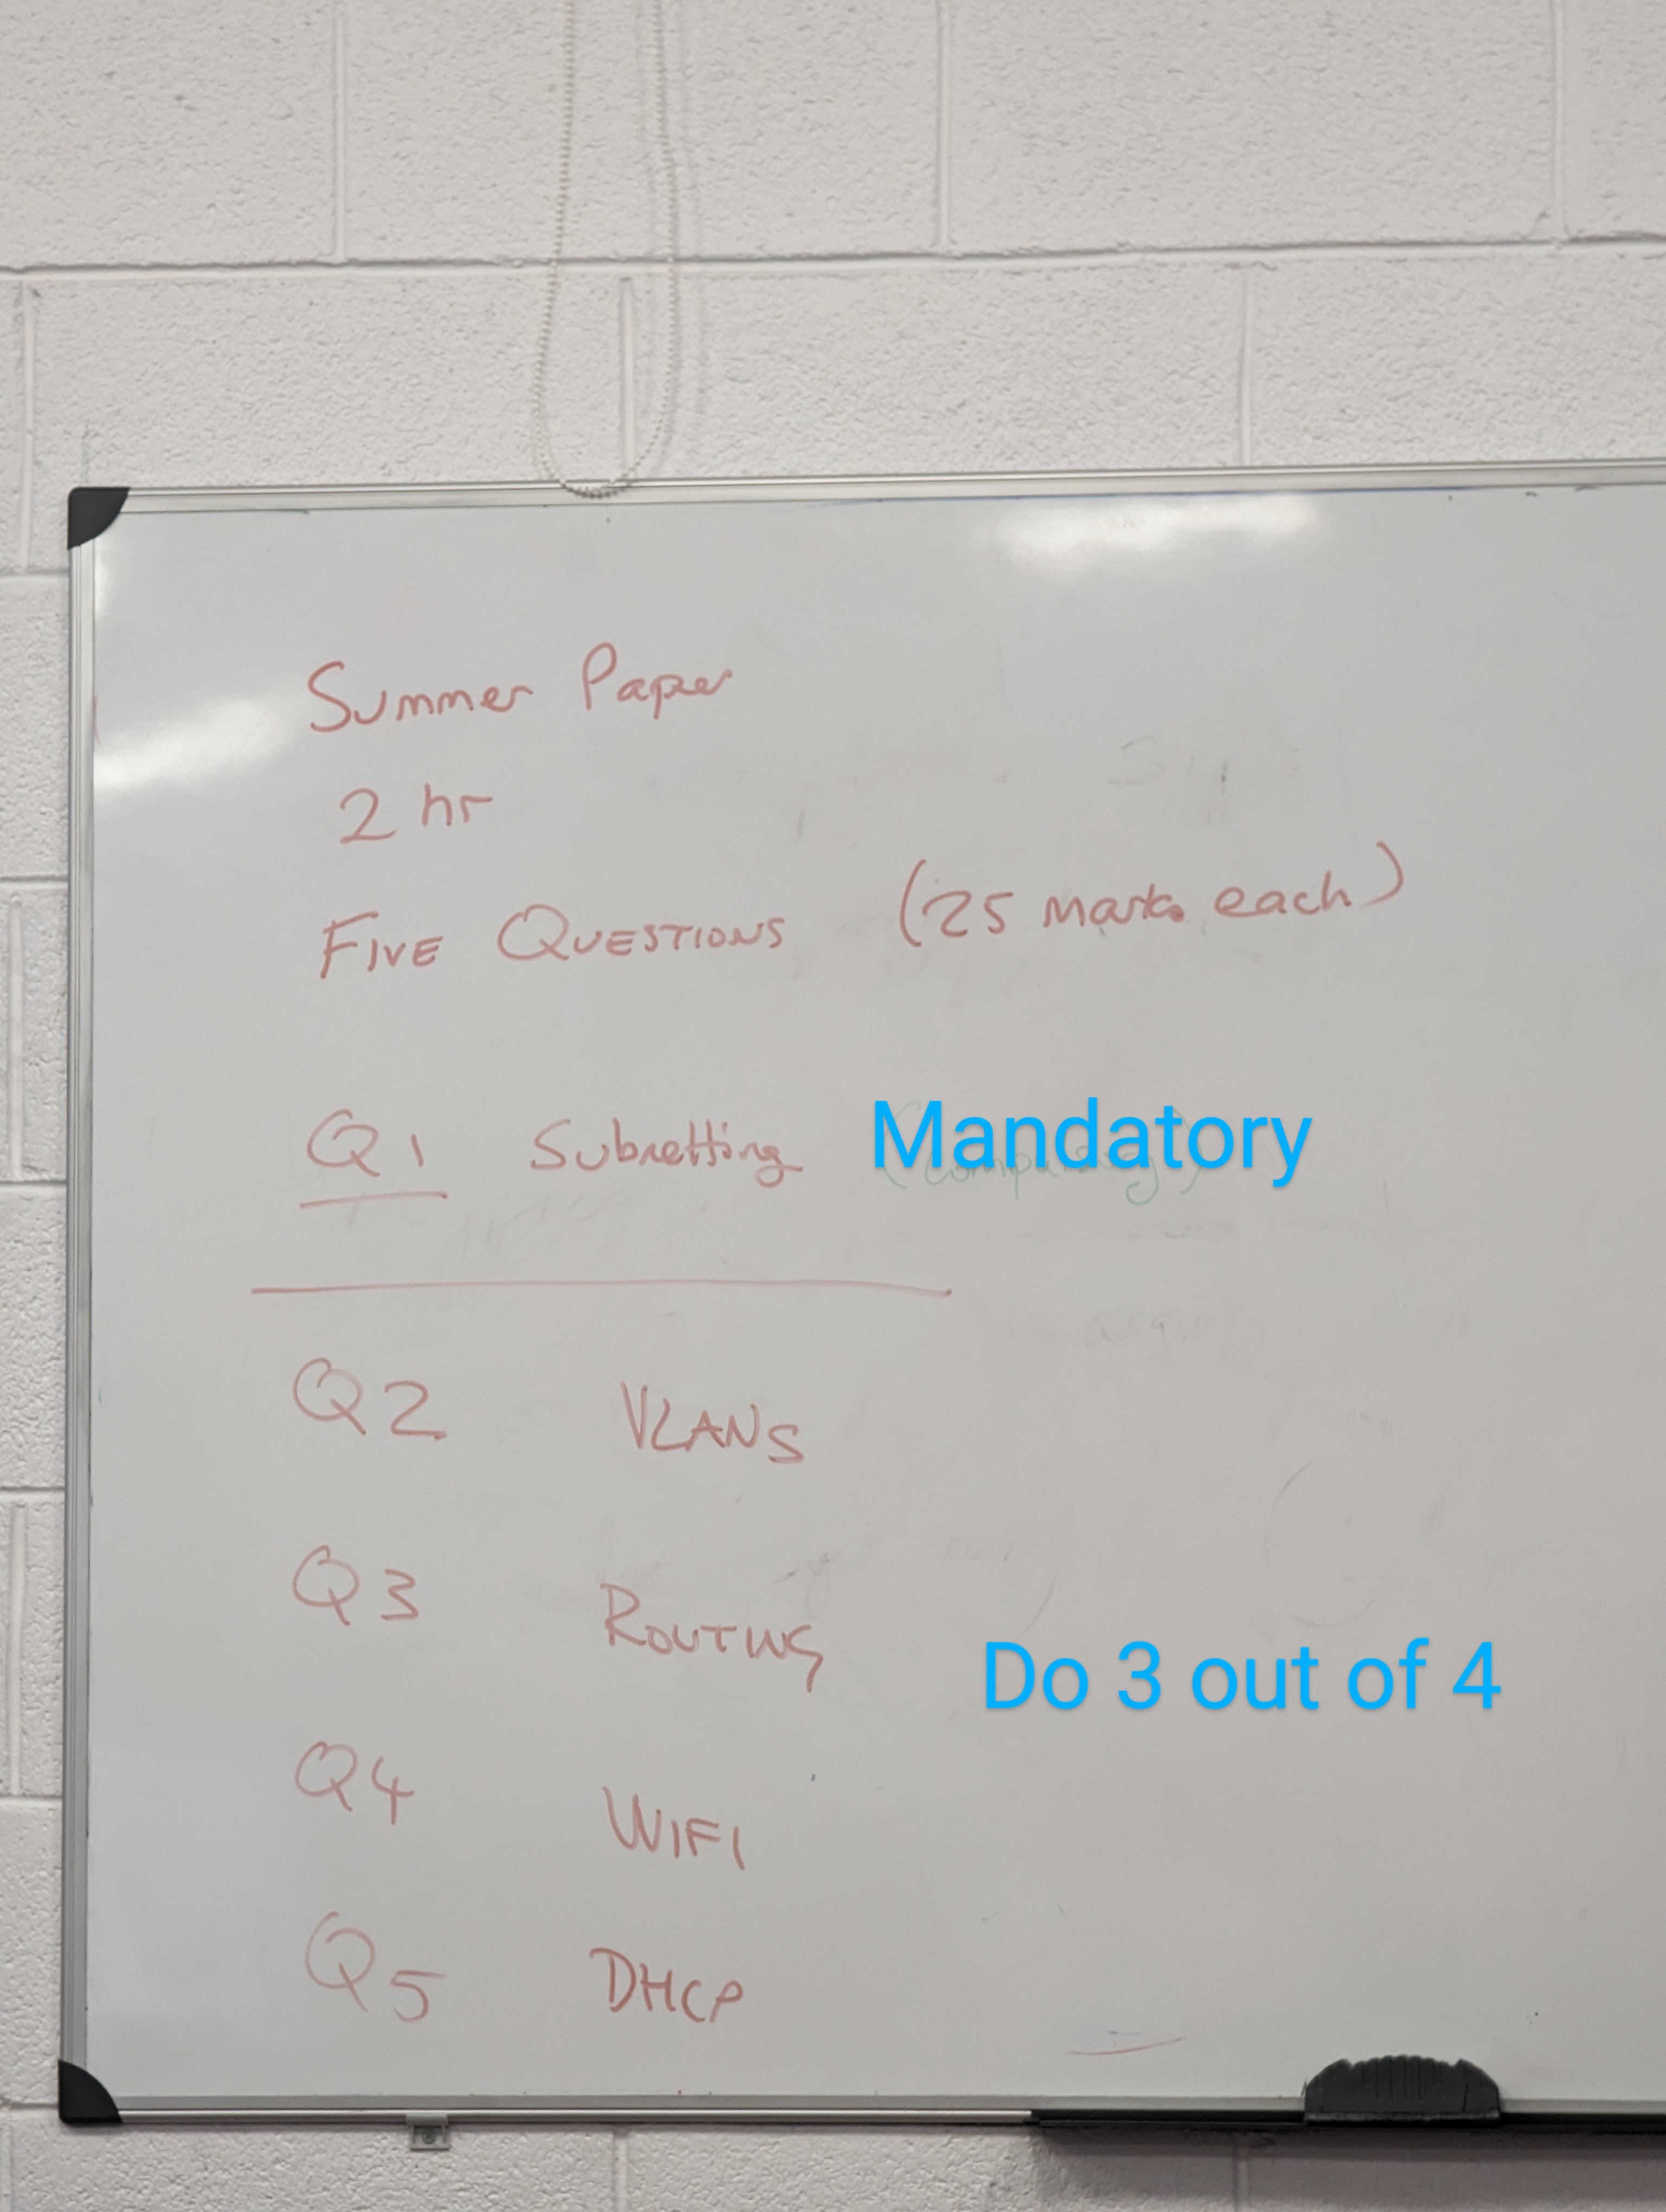 Summer Paper
2 hr
FIVE QUESTIONS (25 marks each)
Q1 Subnetting Mandatory (Compulsory)
Q2 VLANS
Q3 ROUTING
Do 3 out of 4
Q4 WIFI
Q5 DHCP